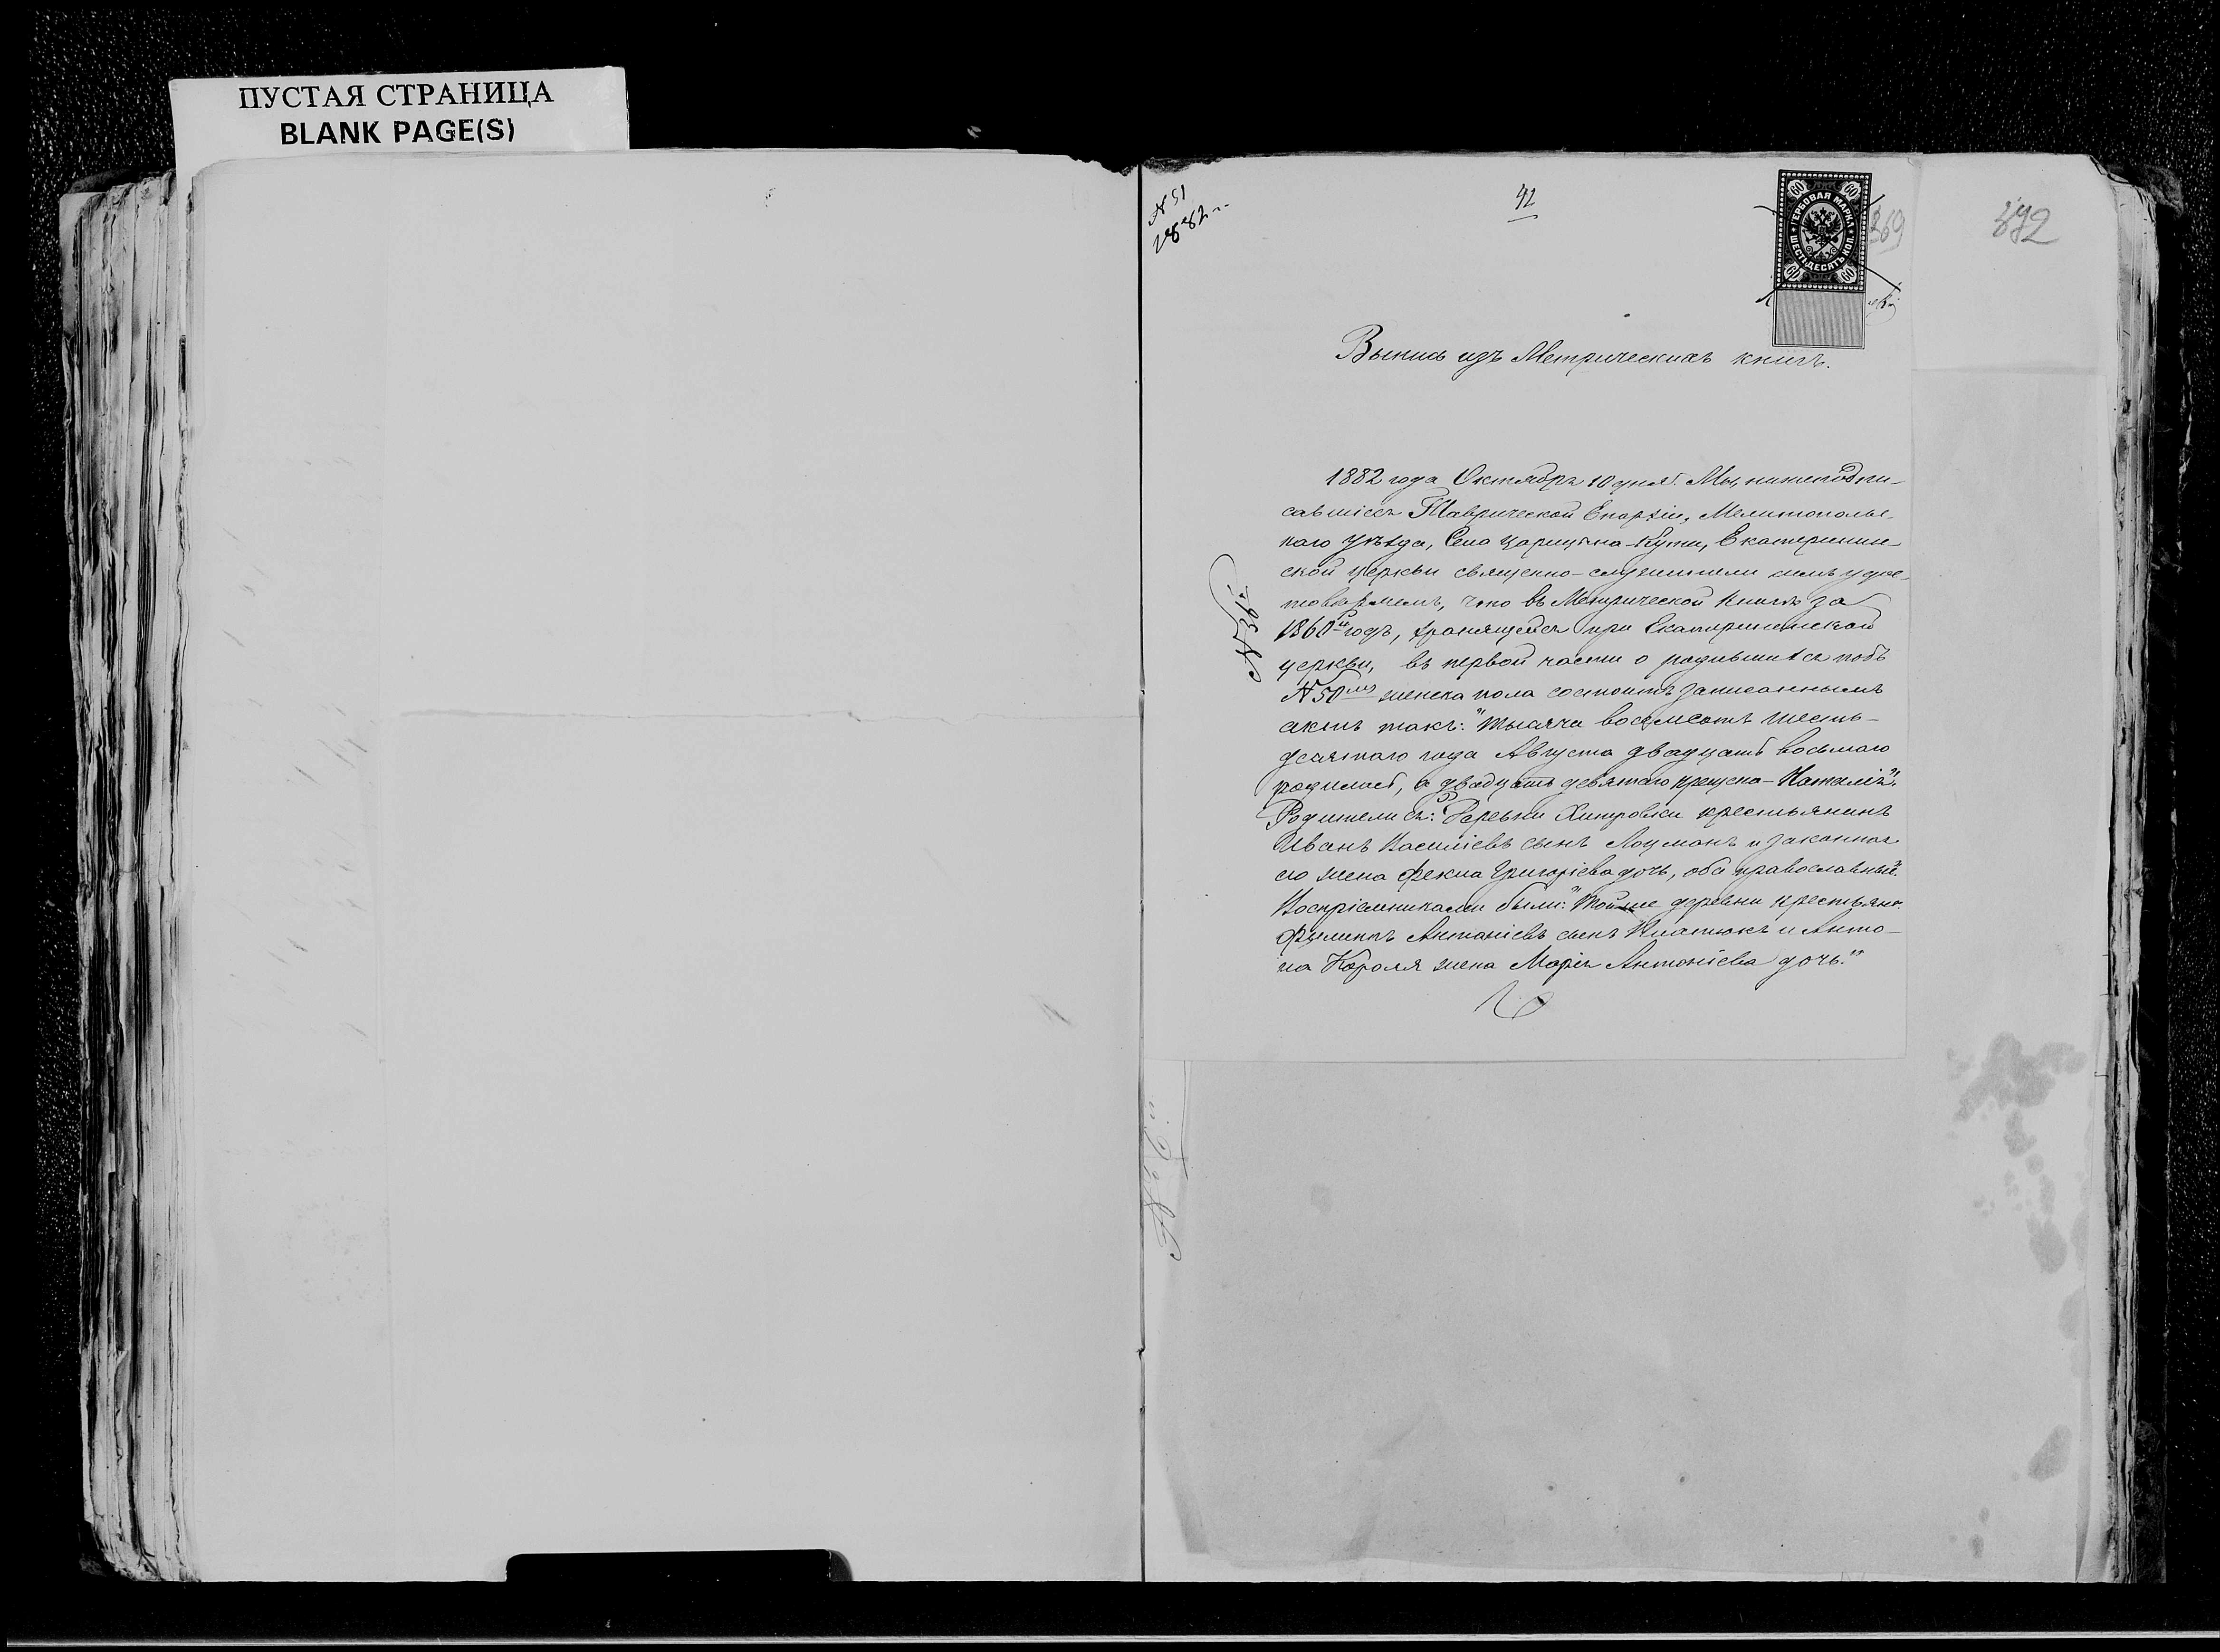 ПУСТАЯ СТРАНИЦА
BLANK PAGE(S)
N 51
1882 г.
42
60 60
ГЕРБОВАЯ МАРКА
ШЕСТЬДЕСЯТЪ КОП.
60 60
369
372
Выпись изъ Метрическихъ книгъ.
1882 года Октября 10 дня. Мы, нижеподпи-
савшіеся Таврической Епархіи, Мелитопольс-
каго уѣзда, Села Царицына-Кута, Екатеринин-
ской церкви священно-служители симъ удос-
товѣряемъ, что въ Метрической книгѣ за
1860й годъ, хранящейся при Екатерининской
церкви, въ первой части о родившихся подъ
N 50мъ женска пола состоитъ записаннымъ
актъ такъ: "Тысяча восемсотъ шесть-
десятаго года Августа двадцать восьмаго
родилась, а двадцать девятаго крещена - Наталія".
Родители ея: "Деревни Хитровки крестьянинъ
Иванъ Василіевъ сынъ Лоцманъ и законная
его жена Фекла Григоріева дочь, оба православные".
Воспріемниками были: "Той же деревни крестьян.
Антоніевъ сынъ Игнатюкъ и Анто-
на Короля жена Марія Антоніева дочь."